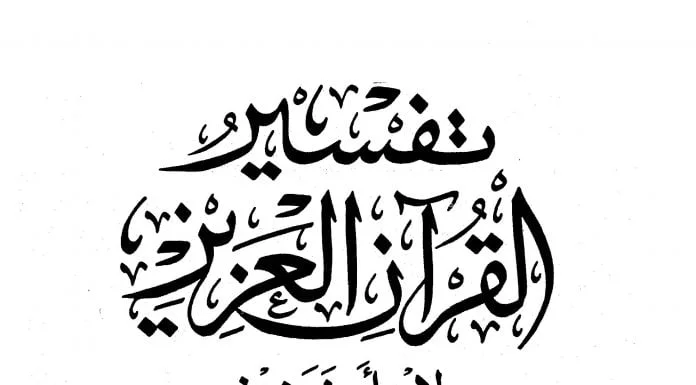 تَفْسِيرُ
الْقُرْآنِ الْعَزِيزِ